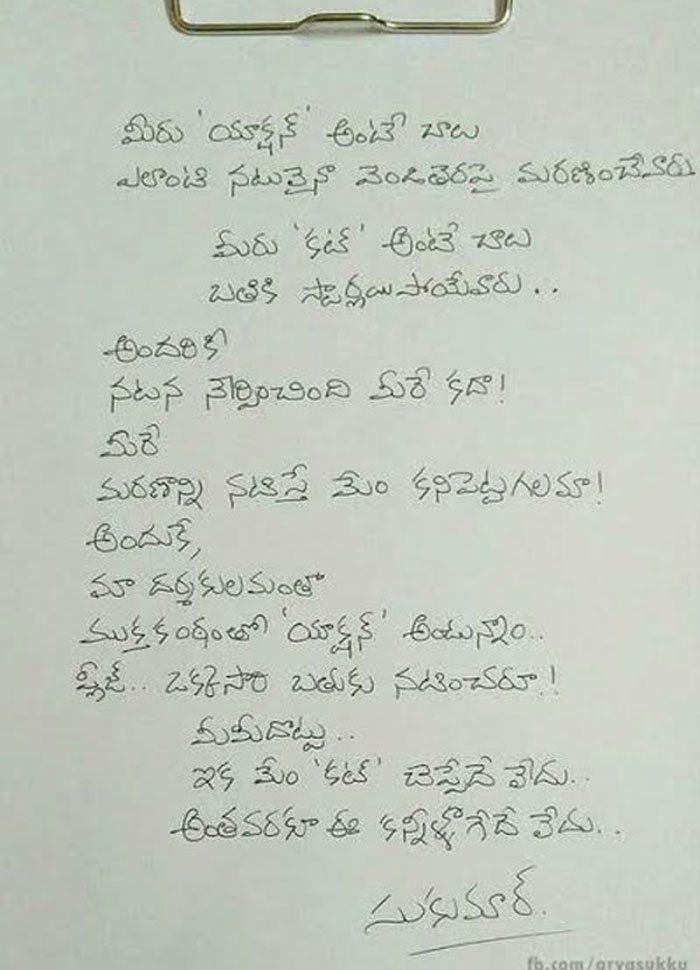 మీరు 'యాక్షన్' అంటే చాలు
ఎలాంటి నటుడైనా వెండితెరపై మరణించేవారు
మీరు 'కట్' అంటే చాలు
బతికి స్టార్లయిపోయేవారు..
అందరికీ
నటన నేర్పించింది మీరే కదా!
మీరే
మరణాన్ని నటిస్తే మేం కనిపెట్టగలమా!
అందుకే,
మా దర్శకులమంతా
ముక్తకంఠంతో 'యాక్షన్' అంటున్నాం..
ప్లీజ్.. ఒక్కసారి బతుకు నటించరూ.!
మీమీదొట్టు..
ఇక మేం 'కట్' చెప్పేదే లేదు..
అంతవరకూ ఈ కన్నీళ్ళాగేదే లేదు..
సుకుమార్.
fb.com/aryasukku